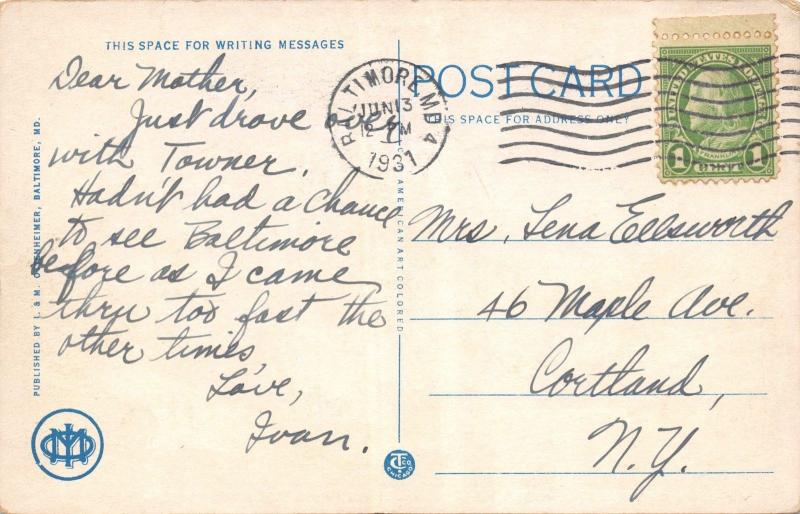 THIS SPACE FOR WRITING MESSAGES
Dear Mother,
Just drove over
with Towner.
Hadn't had a chance
to see Baltimore
before as I came
thru too fast the
other times
Love,
Ivan.
PUBLISHED BY I. & M. OTTENHEIMER, BALTIMORE, MD.
AMERICAN ART COLORED
POST CARD
THIS SPACE FOR ADDRESS ONLY
BALTIMORE, MD.
JUN 13
12 PM
1931
4
FRANKLIN
1 1
Mrs. Lena Ellsworth
46 Maple Ave.
Cortland,
N.Y.
CHICAGO